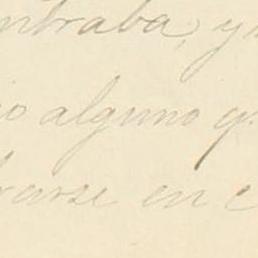 ntraba, y
io alguno q
rarse en c